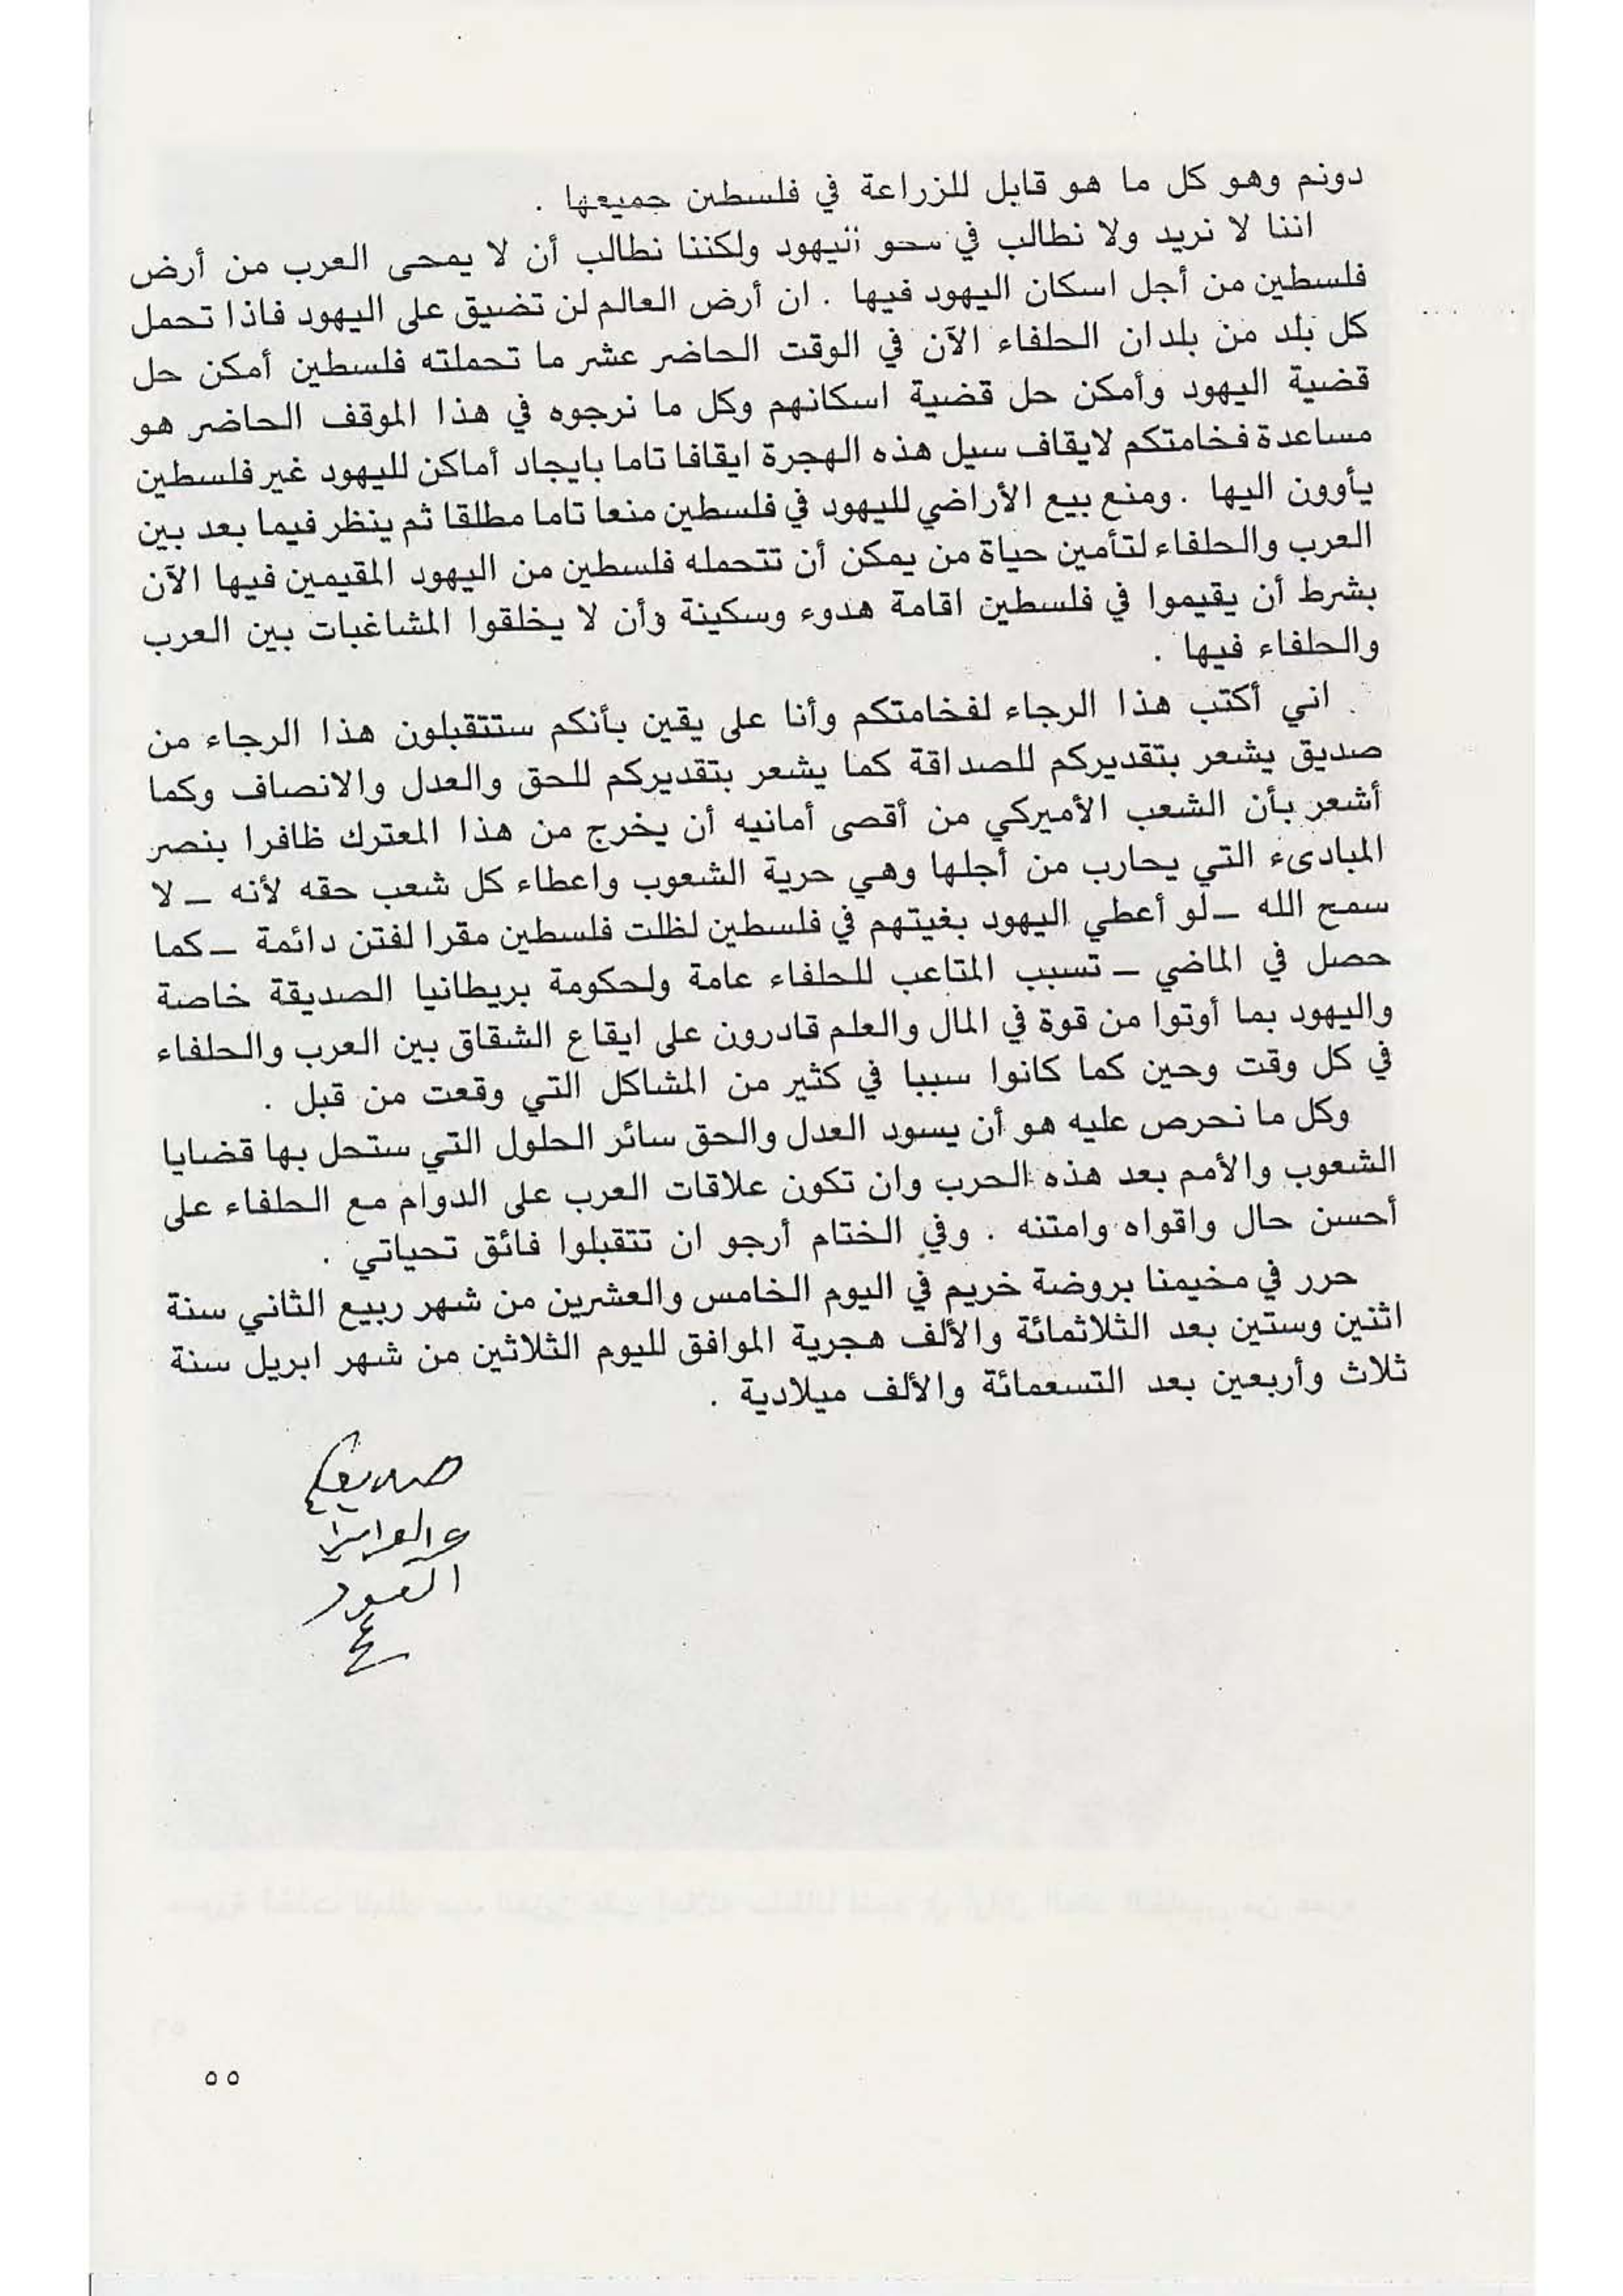 دونم وهو كل ما هو قابل للزراعة في فلسطين جميعها .
اننا لا نريد ولا نطالب في محو اليهود ولكننا نطالب أن لا يمحى العرب من أرض
فلسطين من أجل اسكان اليهود فيها . ان أرض العالم لن تضيق على اليهود فاذا تحمل
كل بلد من بلدان الحلفاء الآن في الوقت الحاضر عشر ما تحملته فلسطين أمكن حل
قضية اليهود وأمكن حل قضية اسكانهم وكل ما نرجوه في هذا الموقف الحاضر هو
مساعدة فخامتكم لايقاف سيل هذه الهجرة ايقافا تاما بايجاد أماكن لليهود غير فلسطين
يأوون اليها . ومنع بيع الأراضي لليهود في فلسطين منعا تاما مطلقا ثم ينظر فيما بعد بين
العرب والحلفاء لتأمين حياة من يمكن أن تتحمله فلسطين من اليهود المقيمين فيها الآن
بشرط أن يقيموا في فلسطين اقامة هدوء وسكينة وأن لا يخلقوا المشاغبات بين العرب
والحلفاء فيها .
اني أكتب هذا الرجاء لفخامتكم وأنا على يقين بأنكم ستتقبلون هذا الرجاء من
صديق يشعر بتقديركم للصداقة كما يشعر بتقديركم للحق والعدل والانصاف وكما
أشعر بأن الشعب الأميركي من أقصى أمانيه أن يخرج من هذا المعترك ظافرا بنصر
المبادىء التي يحارب من أجلها وهي حرية الشعوب واعطاء كل شعب حقه لأنه ــ لا
سمح الله ــ لو أعطي اليهود بغيتهم في فلسطين لظلت فلسطين مقرا لفتن دائمة ــ كما
حصل في الماضي ــ تسبب المتاعب للحلفاء عامة ولحكومة بريطانيا الصديقة خاصة
واليهود بما أوتوا من قوة في المال والعلم قادرون على ايقاع الشقاق بين العرب والحلفاء
في كل وقت وحين كما كانوا سببا في كثير من المشاكل التي وقعت من قبل .
وكل ما نحرص عليه هو أن يسود العدل والحق سائر الحلول التي ستحل بها قضايا
الشعوب والأمم بعد هذه الحرب وان تكون علاقات العرب على الدوام مع الحلفاء على
أحسن حال واقواه وامتنه . وفي الختام أرجو ان تتقبلوا فائق تحياتي .
حرر في مخيمنا بروضة خريم في اليوم الخامس والعشرين من شهر ربيع الثاني سنة
اثنين وستين بعد الثلاثمائة والألف هجرية الموافق لليوم الثلاثين من شهر ابريل سنة
ثلاث وأربعين بعد التسعمائة والألف ميلادية .
صديقكم
السعود
٥٥